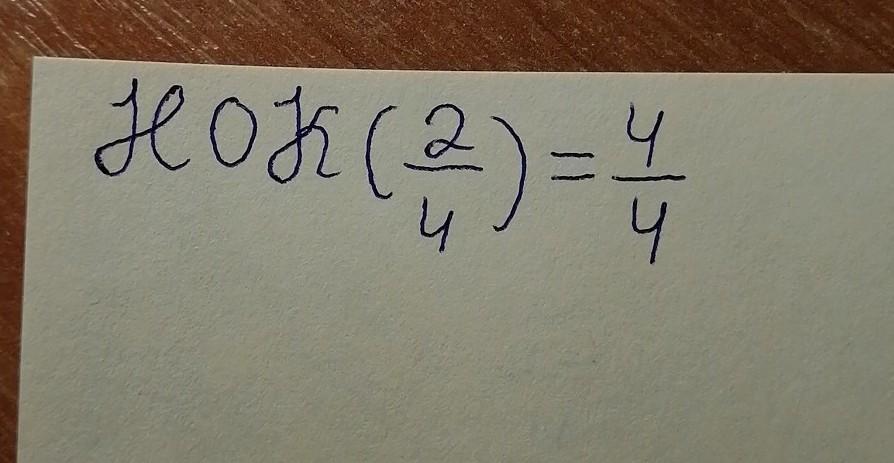 НОК(2/4)=4/4